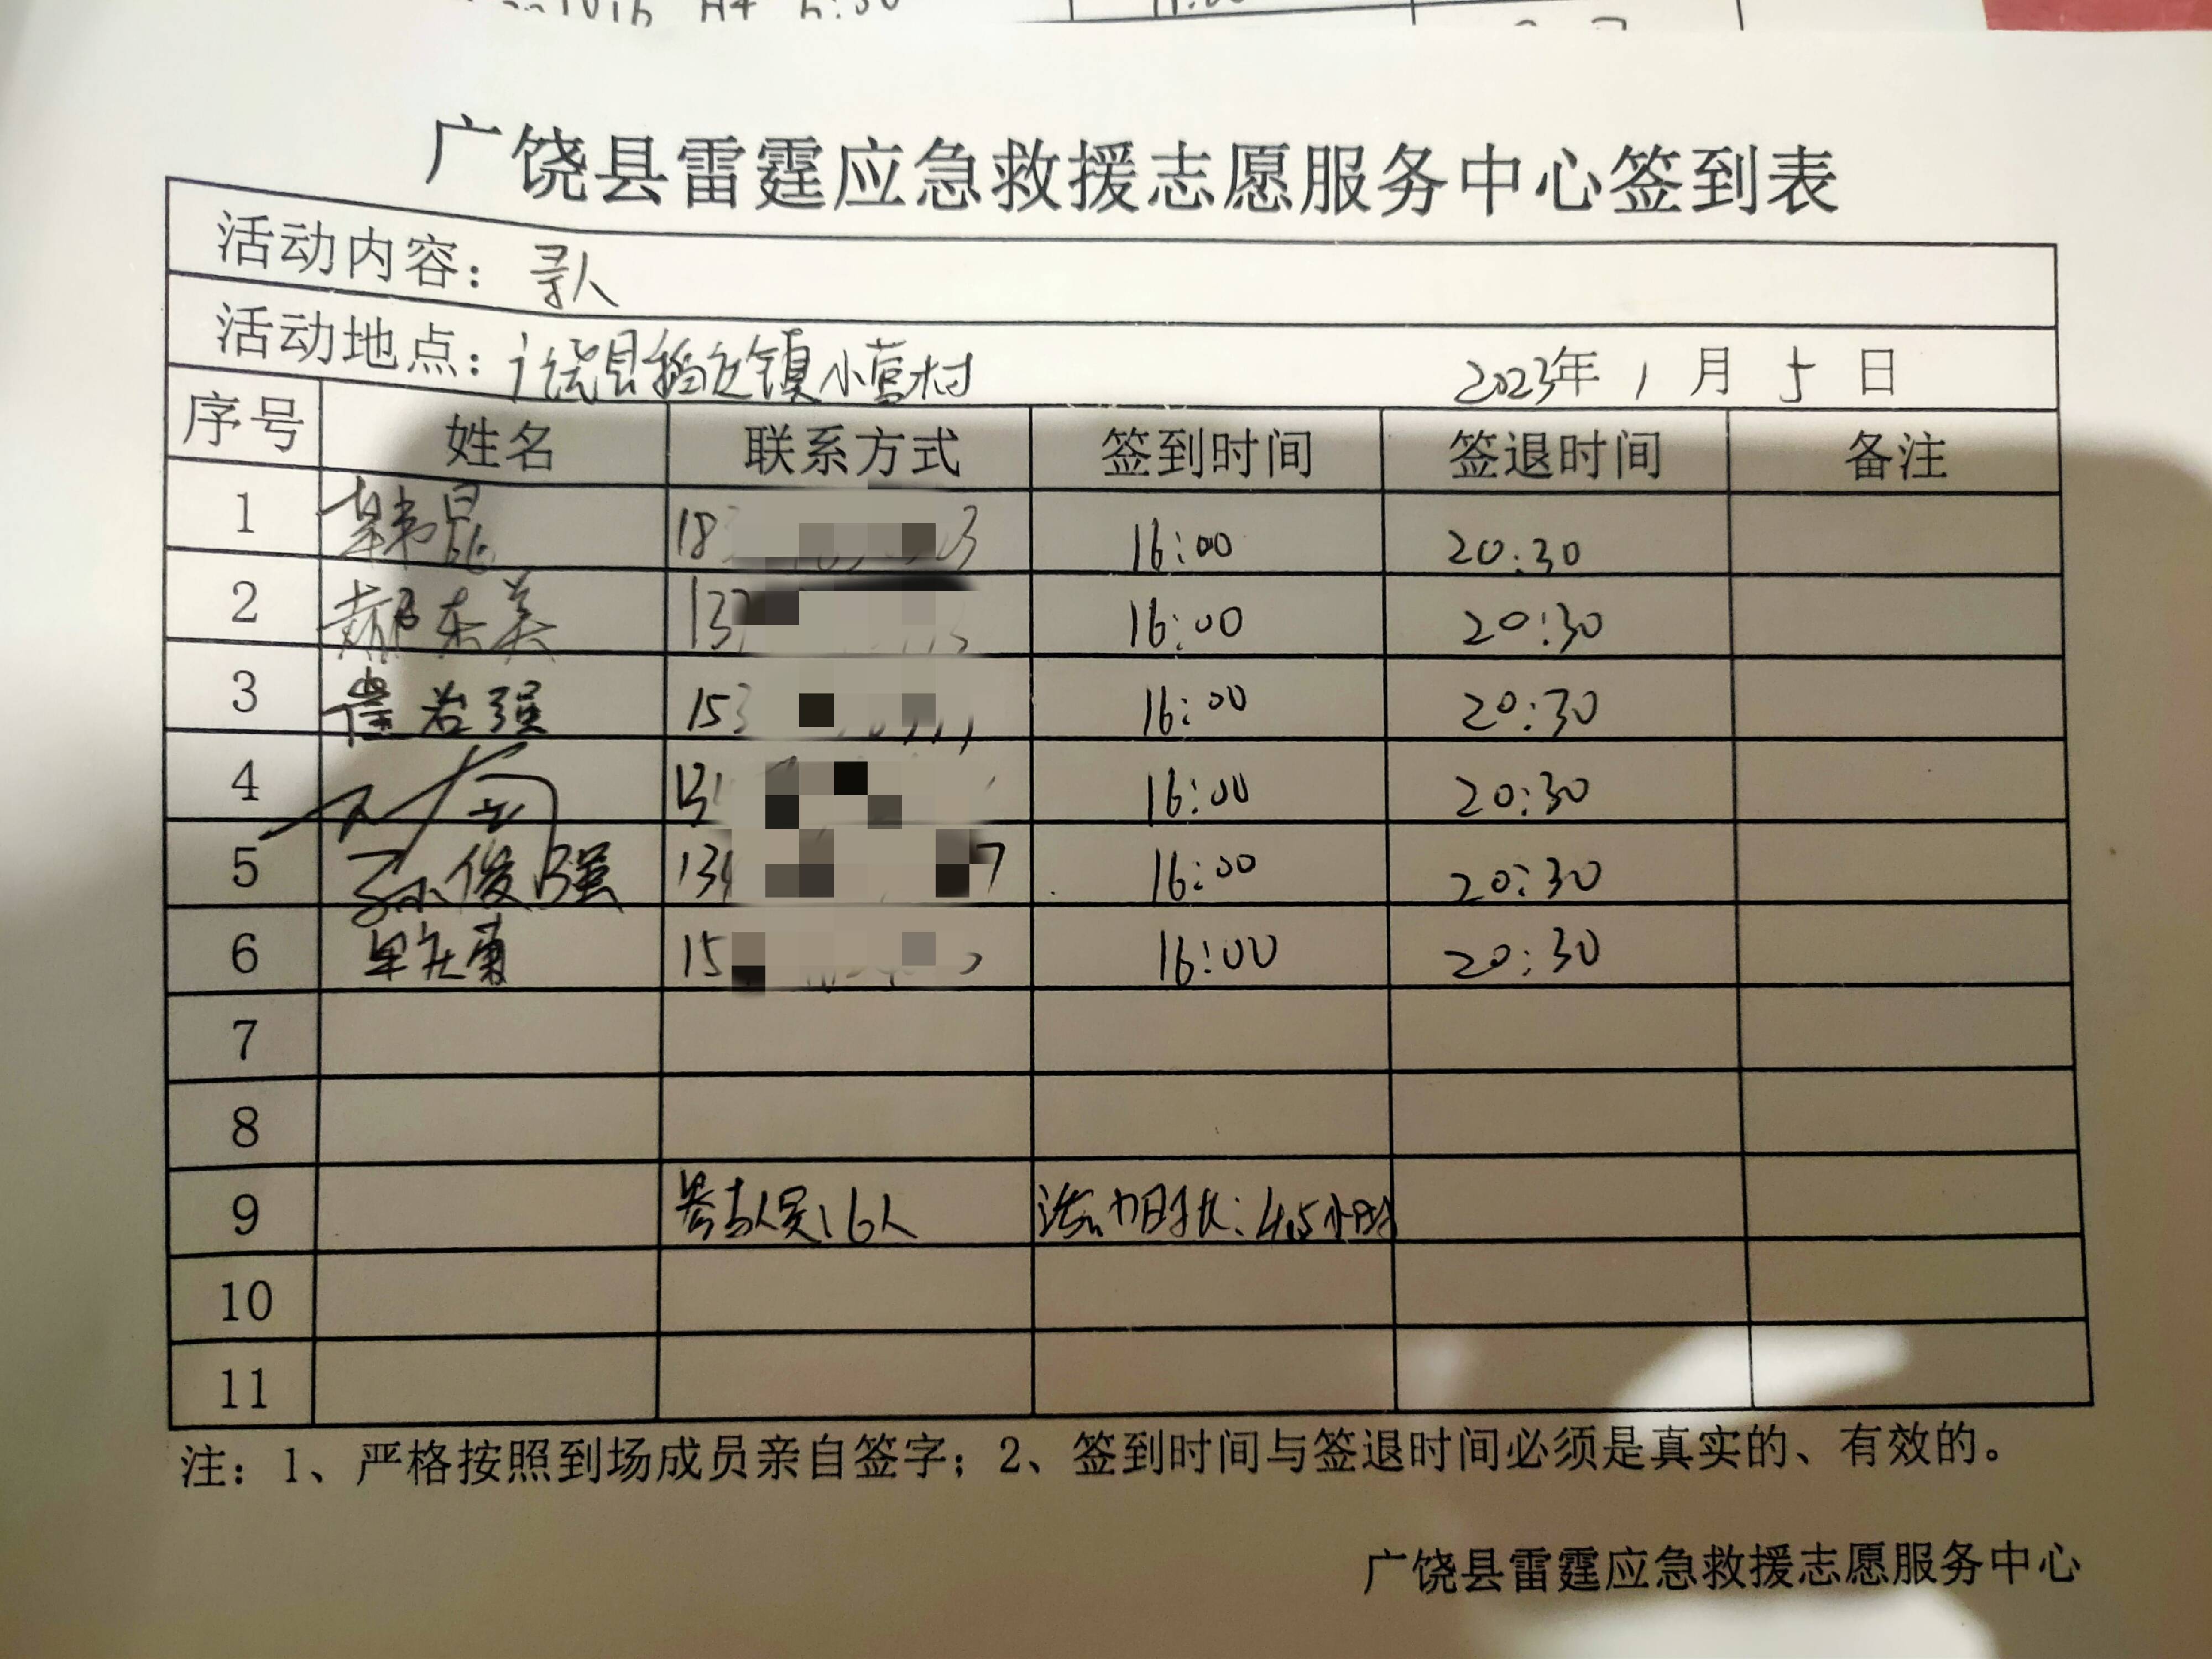 广饶县雷霆应急救援志愿服务中心签到表
活动内容：寻人
活动地点：广饶县稻庄镇小营村 2023年1月5日
序号 姓名 联系方式 签到时间 签退时间 备注
1 韩昆 18 3 16:00 20:30
2 郝东美 137 16:00 20:30
3 崔岩强 153 16:00 20:30
4 16:00 20:30
5 孙俊强 134 7 16:00 20:30
6 15 16:00 20:30
7
8
9 参与人员:6人 活动时长:4.5小时
10
11
注：1、严格按照到场成员亲自签字；2、签到时间与签退时间必须是真实的、有效的。
广饶县雷霆应急救援志愿服务中心